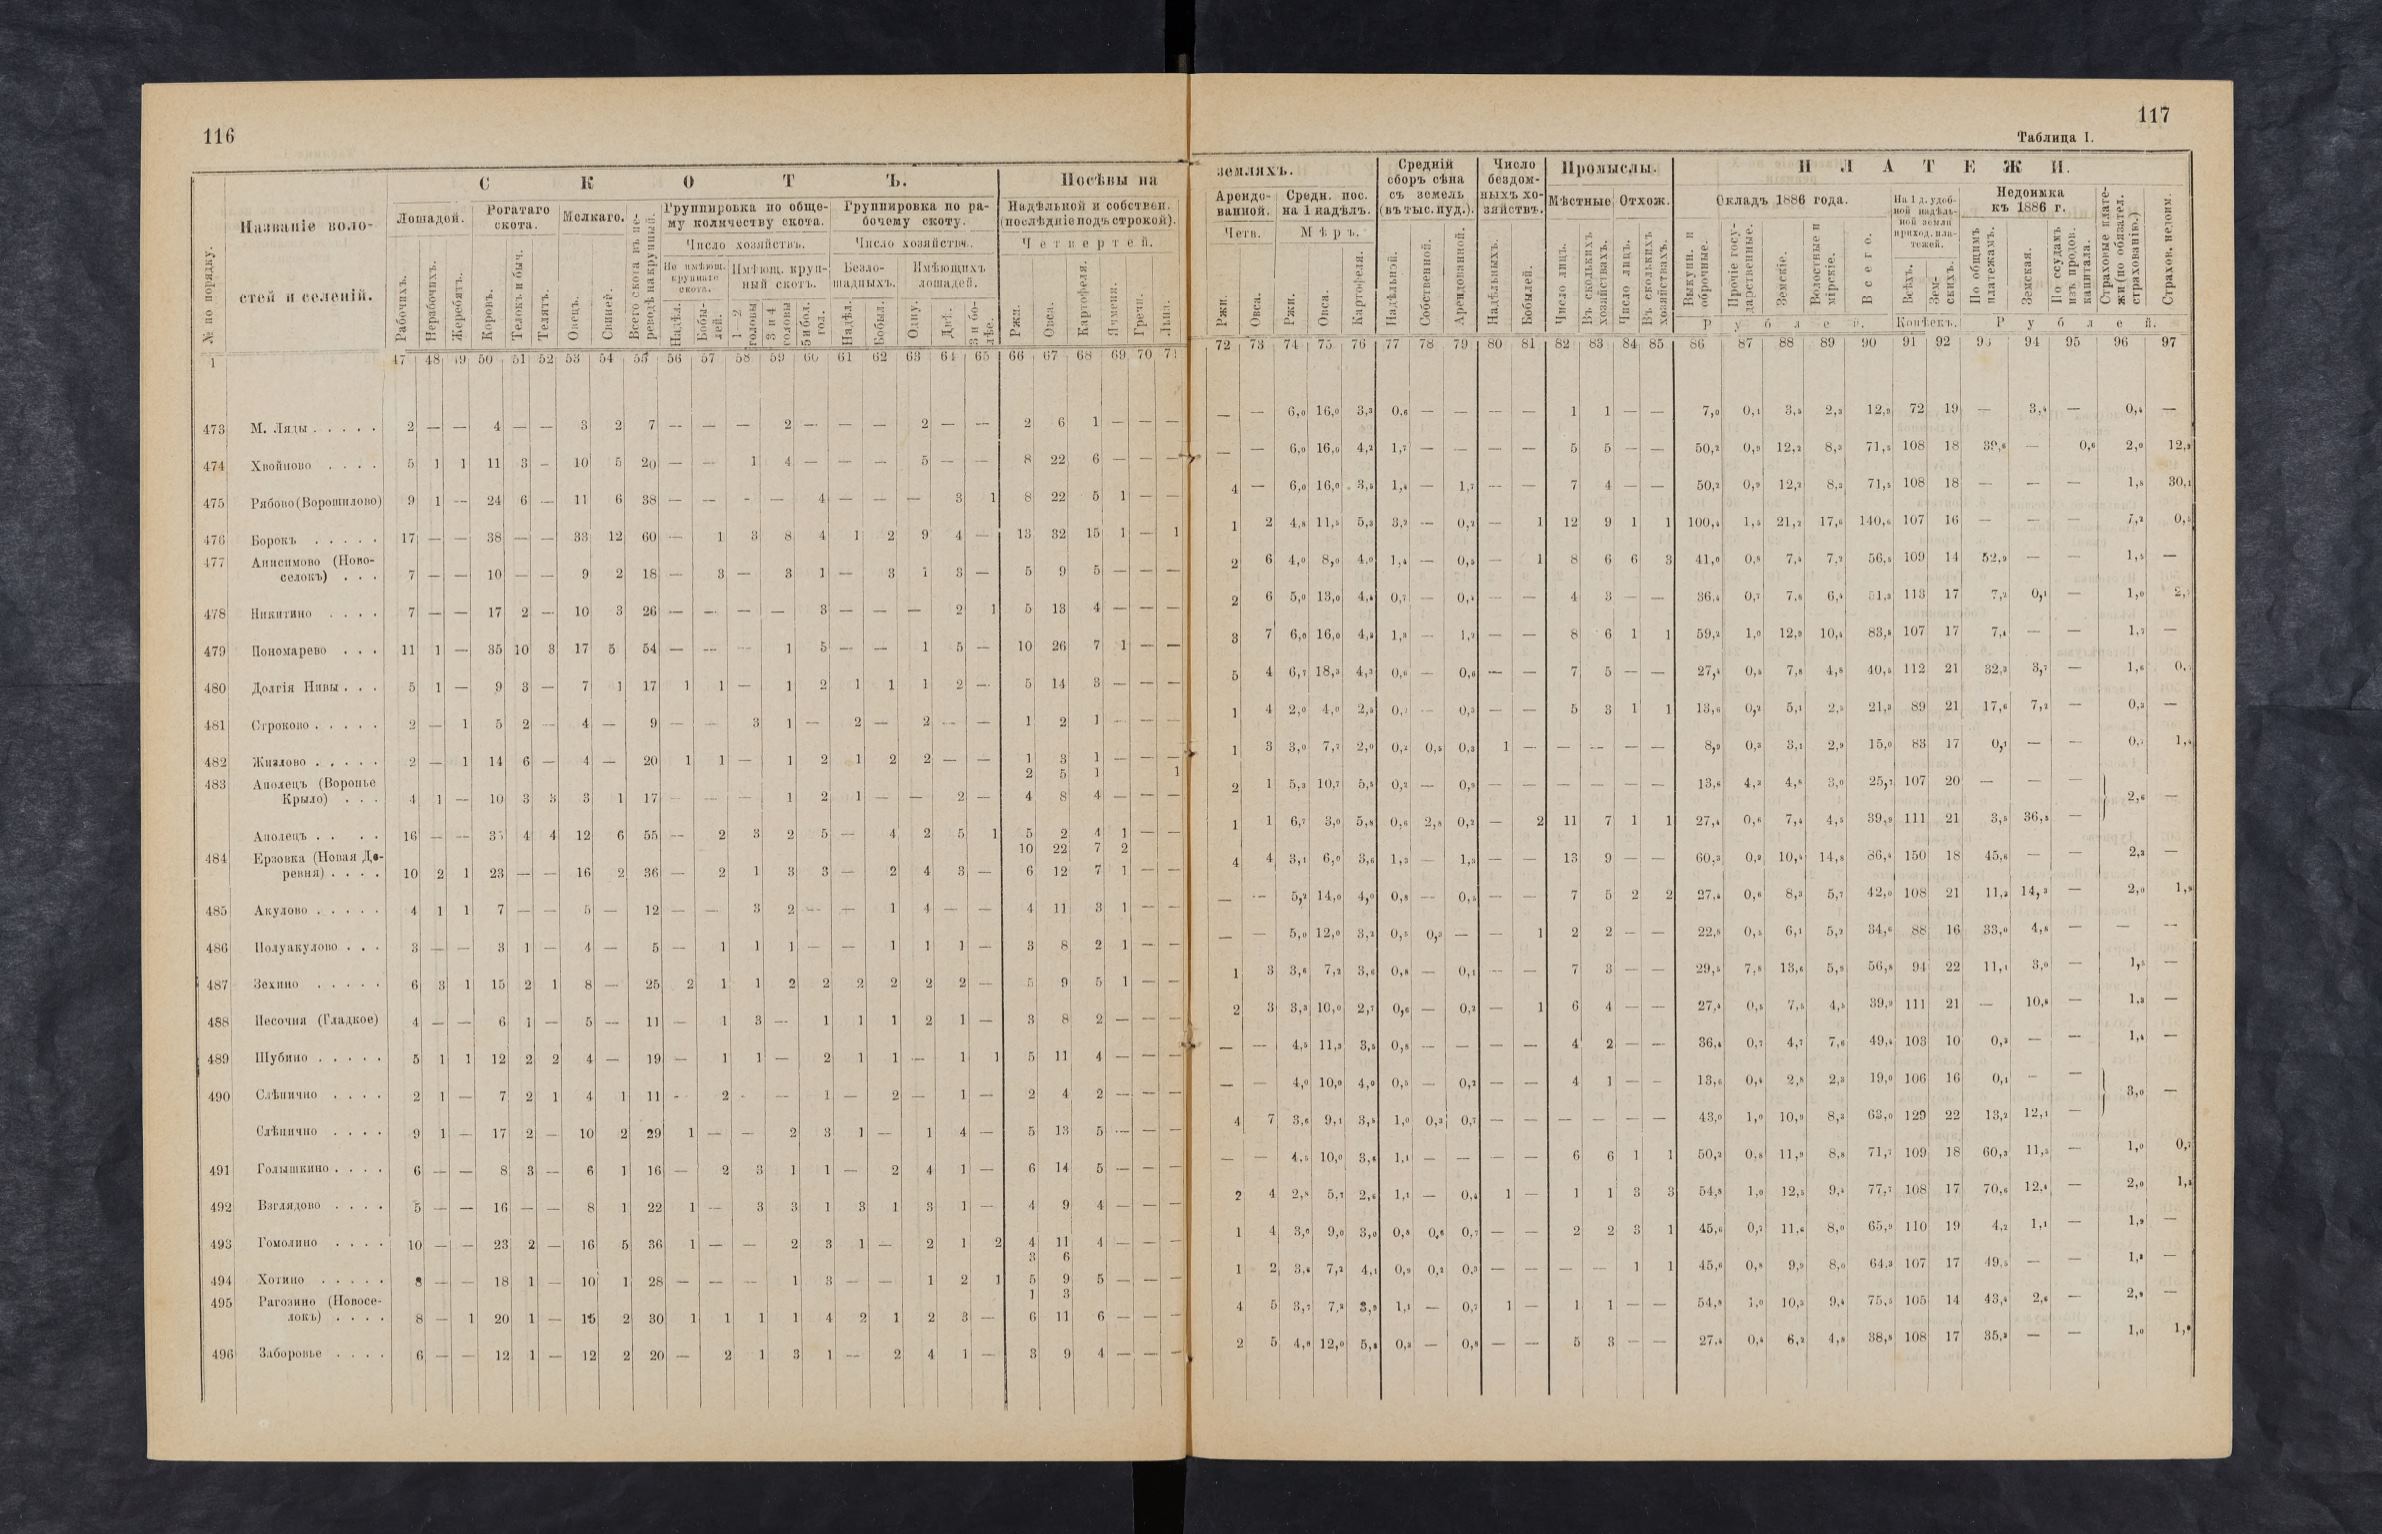 116
С К О Т Ъ.
Посѣвы на
№ по порядку.
Названіе воло-
стей и селеній.
Лошадей.
Рогатаго
скота.
Мелкаго.
Всего скота въ пе-
реводѣ на крупный.
Группировка по обще-
му количеству скота.
Группировка по ра-
бочему скоту.
Надѣльной и собствен.
(послѣдніе подъ строкой).
Число хозяйствъ.
Число хозяйствъ.
Четвертей.
Не имѣющ.
крупнаго
скота.
Имѣющ. круп-
ный скотъ.
Безло-
шадныхъ.
Имѣющихъ
лошадей.
Рабочихъ.
Нерабочихъ.
Жеребятъ.
Коровъ.
Телокъ и быч.
Телятъ.
Овецъ.
Свиней.
Надѣл.
Бобы-
лей.
1—2
головы
3 и 4
головы
5 и бол.
гол.
Надѣл.
Бобыл.
Одну.
Двѣ.
3 и бо-
лѣе.
Ржи.
Овса.
Картофеля.
Ячменя.
Гречи.
Льна.
1 47 48 49 50 51 52 53 54 55 56 57 58 59 60 61 62 63 64 65 66 67 68 69 70 71
473 М. Ляды . . . . . 2 — — 4 — — 3 2 7 — — — 2 — — — 2 — — 2 6 1 — — —
474 Хвойново . . . . 5 1 1 11 3 — 10 5 20 — — 1 4 — — — 5 — — 8 22 6 — — —
475 Рябово (Ворошилово) 9 1 — 24 6 — 11 6 38 — — - — 4 — — — 3 1 8 22 5 1 — —
476 Борокъ . . . . . 17 — — 38 — — 33 12 60 — 1 3 8 4 1 2 9 4 — 13 32 15 1 — 1
477 Анисимово (Ново-
селокъ) . . . 7 — — 10 — — 9 2 18 — 3 — 3 1 — 3 1 3 — 5 9 5 — — —
478 Никитино . . . . 7 — — 17 2 — 10 3 26 — — — — 3 — — — 2 1 5 13 4 — — —
479 Пономарево . . . 11 1 — 35 10 3 17 5 54 — — — 1 5 — — 1 5 — 10 26 7 1 — —
480 Долгія Нивы . . . 5 1 — 9 3 — 7 1 17 1 1 — 1 2 1 1 1 2 — 5 14 3 — — —
481 Строково . . . . . 2 — 1 5 2 — 4 — 9 — — 3 1 — 2 — 2 — — 1 2 1 — — —
482 Жилово . . . . . 2 — 1 14 6 — 4 — 20 1 1 — 1 2 1 2 2 — — 1 3 1 — — —
2 5 1 1
483 Аполецъ (Воронье
Крыло) . . . 4 1 — 10 3 3 3 1 17 — — — 1 2 1 — — 2 — 4 8 4 — — —
Аполецъ . . . . 16 — — 4 4 12 6 55 — 2 3 2 5 — 4 2 5 1 5 2 4 1 — —
10 22 7 2
484 Ерзовка (Новая Де-
ревня) . . . . 10 2 1 23 — — 16 2 36 — 2 1 3 3 — 2 4 3 — 6 12 7 1 — —
485 Акулово . . . . . 4 1 1 7 — — 5 — 12 — — 3 2 — — 1 4 — — 4 11 3 1 — —
486 Полуакулово . . . 3 — — 3 1 — 4 — 5 — 1 1 1 — — 1 1 1 — 3 8 2 1 — —
487 Зехино . . . . . 6 3 1 15 2 1 8 — 25 2 1 1 2 2 2 2 2 2 — 5 9 5 1 — —
488 Песочня (Гладкое) 4 — — 6 1 — 5 — 11 — 1 3 — 1 1 1 2 1 — 3 8 2 — — —
489 Шубино . . . . . 5 1 1 12 2 2 4 — 19 — 1 1 — 2 1 1 — 1 1 5 11 4 — — —
490 Слѣпично . . . . 2 1 — 7 2 1 4 1 11 - 2 - — 1 — 2 — 1 — 2 4 2 — — —
Слѣпично . . . . 9 1 — 17 2 — 10 2 29 1 — — 2 3 1 — 1 4 — 5 13 5 — — —
491 Голышкино . . . . 6 — — 8 3 — 6 1 16 — 2 3 1 1 — 2 4 1 — 6 14 5 — — —
492 Взглядово . . . . 5 — — 16 — — 8 1 22 1 — 3 3 1 3 1 3 1 — 4 9 4 — — —
493 Гомолино . . . . 10 — — 23 2 — 16 5 36 1 — — 2 3 1 — 2 1 2 4 11 4 — — —
3 6
494 Хотино . . . . . 8 — — 18 1 — 10 1 28 — — — 1 3 — — 1 2 1 5 9 5 — — —
1 3
495 Рагозино (Новосе-
локъ) . . . . 8 — 1 20 1 — 15 2 30 1 1 1 1 4 2 1 2 3 — 6 11 6 — — —
496 Заборовье . . . . 6 — — 12 1 — 12 2 20 — 2 1 3 1 — 2 4 1 — 3 9 4 — — —
117
Таблица I.
земляхъ.
Средній
сборъ сѣна
съ земель
(въ тыс. пуд.).
Число
бездом-
ныхъ хо-
зяйствъ.
Промыслы.
ПЛАТЕЖИ.
Арендо-
ванной.
Средн. пос.
на 1 надѣлъ.
Мѣстные
Отхож.
Окладъ 1886 года.
На 1 д. удоб-
ной надѣль-
ной земли
приход. пла-
тежей.
Недоимка
къ 1886 г.
Четв.
Мѣръ.
Ржи.
Овса.
Ржи.
Овса.
Картофеля.
Надѣльной.
Собственной.
Арендованной.
Надѣльныхъ.
Бобылей.
Число лицъ.
Въ сколькихъ
хозяйствахъ.
Число лицъ.
Въ сколькихъ
хозяйствахъ.
Выкупн. и
оброчные.
Прочіе госу-
дарственные.
Земскіе.
Волостные и
мірскіе.
Всего.
Всѣхъ.
Зем-
скихъ.
По общимъ
платежамъ.
Земская.
По ссудамъ
изъ продов.
капитала.
Страховые плате-
жи (по обязател.
страхованію.)
Страхов. недоим.
Рублей.
Копѣекъ.
Рублей.
72 73 74 75 76 77 78 79 80 81 82 83 84 85 86 87 88 89 90 91 92 93 94 95 96 97
— — 6,0 16,0 3,3 0,6 — — — — 1 1 — — 7,0 0,1 3,5 2,3 12,9 72 19 — 3,4 — 0,4 —
— — 6,0 16,0 4,2 1,7 — — — — 5 5 — — 50,2 0,9 12,2 8,3 71,5 108 18 39,6 — 0,6 2,0 12,3
4 — 6,0 16,0 3,5 1,4 — 1,7 — — 7 4 — — 50,2 0,9 12,2 8,3 71,5 108 18 — — — 1,8 30,1
1 2 4,8 11,5 5,3 3,2 — 0,2 — 1 12 9 1 1 100,4 1,5 21,2 17,6 140,6 107 16 — — — 7,2 0,5
2 6 4,0 8,0 4,0 1,4 — 0,5 — 1 8 6 6 3 41,0 0,8 7,4 7,2 56,5 109 14 52,9 — — 1,5 —
2 6 5,0 13,0 4,4 0,7 — 0,4 — — 4 3 — — 36,4 0,7 7,8 6,4 51,3 113 17 7,2 0,1 — 1,0
3 7 6,0 16,0 4,3 1,3 — 1,2 — — 8 6 1 1 59,2 1,0 12,9 10,4 83,8 107 17 7,4 — — 1,7 —
5 4 6,7 18,3 4,3 0,6 — 0,6 — — 7 5 — — 27,4 0,5 7,8 4,8 40,5 112 21 32,3 3,7 — 1,6
1 4 2,0 4,0 2,5 — 0,3 — — 5 3 1 1 13,6 0,2 5,1 2,5 21,3 89 21 17,6 7,2 — 0,3 —
1 3 3,0 7,7 2,0 0,2 0,5 0,3 1 — — — — — 8,9 0,3 3,1 2,9 15,0 83 17 0,1 — —
2 1 5,3 10,7 5,5 0,2 — 0,9 — — — — — — 13,6 4,3 4,8 3,0 25,7 107 20 — — —
2,6 —
1 1 6,7 3,0 5,8 0,6 2,8 0,2 — 2 11 7 1 1 27,4 0,6 7,4 4,5 39,9 111 21 3,5 36,5 —
4 4 3,1 6,0 3,6 1,3 — 1,3 — — 13 9 — — 60,3 0,9 10,4 14,8 86,4 150 18 45,6 — — 2,3 —
— — 5,2 14,0 4,0 0,8 — 0,5 — — 7 5 2 2 27,4 0,6 8,3 5,7 42,0 108 21 11,3 14,3 — 2,0 1,9
— — 5,0 12,0 3,2 0,5 0,3 — — 1 2 2 — — 22,8 0,5 6,1 5,2 34,6 88 16 33,0 4,8 — — —
1 3 3,6 7,2 3,6 0,8 — 0,4 — — 7 3 — — 29,5 7,8 13,6 5,9 56,8 94 22 11,1 3,0 — 1,5 —
2 3 3,3 10,0 2,7 0,6 — 0,2 — 1 6 4 — — 27,4 0,5 7,5 4,5 39,9 111 21 — 10,8 — 1,3 —
— — 4,5 11,3 3,5 0,8 — — — — 4 2 — — 36,4 0,7 4,7 7,6 49,4 103 10 0,3 — — 1,4 —
— — 4,0 10,0 4,0 0,5 — 0,2 — — 4 1 — — 13,6 0,4 2,8 2,3 19,0 106 16 0,1 — —
3,0 —
4 7 3,6 9,1 3,5 1,0 0,3 0,7 — — — — — — 43,0 1,0 10,9 8,3 63,0 129 22 13,2 12,1 —
— — 4,5 10,0 3,6 1,1 — — — — 6 6 1 1 50,2 0,8 11,9 8,8 71,7 109 18 60,3 11,5 — 1,0 0,7
2 4 2,8 5,7 2,6 1,1 — 0,4 1 — 1 1 3 3 54,8 1,0 12,5 9,4 77,7 108 17 70,6 12,4 — 2,0
1 4 3,0 9,0 3,0 0,8 0,6 0,7 — — 2 2 3 1 45,6 0,7 11,6 8,0 65,9 110 19 4,2 1,1 — 1,9 —
1 2 3,6 7,2 4,1 0,9 0,2 0,3 — — — — 1 1 45,6 0,8 9,9 8,0 64,3 107 17 49,5 — — 1,8 —
4 5 3,7 7,3 3,9 1,1 — 0,7 1 — 1 1 — — 54,8 1,0 10,3 9,4 75,5 105 14 43,4 2,6 — 2,9 —
2 5 4,0 12,0 5,8 0,3 — 0,8 — — 5 3 — — 27,4 0,4 6,2 4,8 38,8 108 17 35,3 — — 1,0